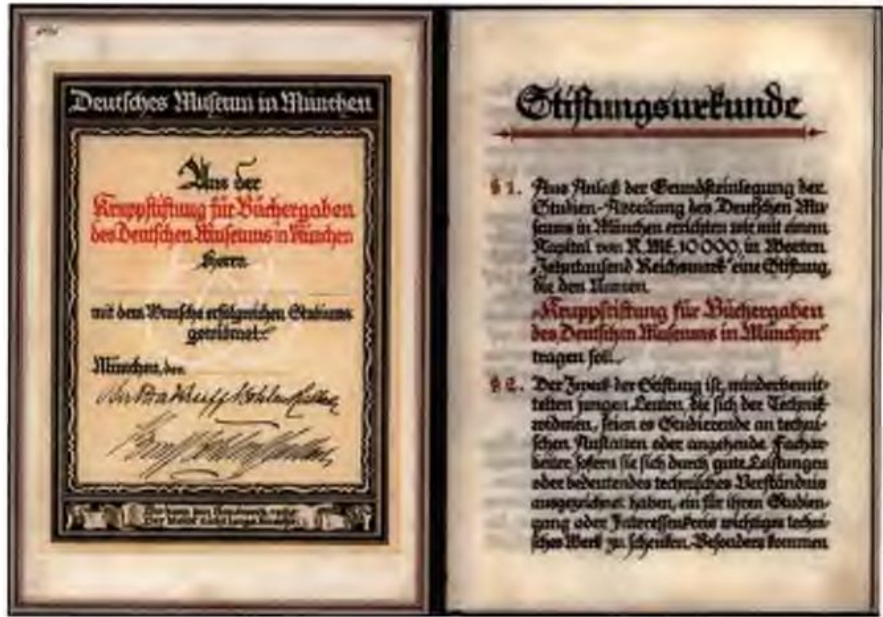 Deutsches Museum in München
Aus der
Kruppstiftung für Büchergaben
des Deutschen Museums in München
Herrn
mit dem Wunsche erfolgreichen Studiums
gewidmet.
München, den
Stiftungsurkunde
§ 1. Aus Anlaß der Grundsteinlegung der
Studien-Abteilung des Deutschen Mu-
seums in München errichten wir mit einem
Kapital von R. Mk. 10 000, in Worten
„Zehntausend Reichsmark“ eine Stiftung,
die den Namen
„Kruppstiftung für Büchergaben
des Deutschen Museums in München“
tragen soll.
§ 2. Der Zweck der Stiftung ist, minderbemit-
telten jungen Leuten, die sich der Technik
widmen, seien es Studierende an techni-
schen Anstalten oder angehende Fachar-
beiter, sofern sie sich durch gute Leistungen
oder bedeutendes technisches Verständnis
ausgezeichnet haben, ein für ihren Studien-
gang oder Interessenkreis wichtiges techni-
sches Werk zu schenken. Besonders kommen